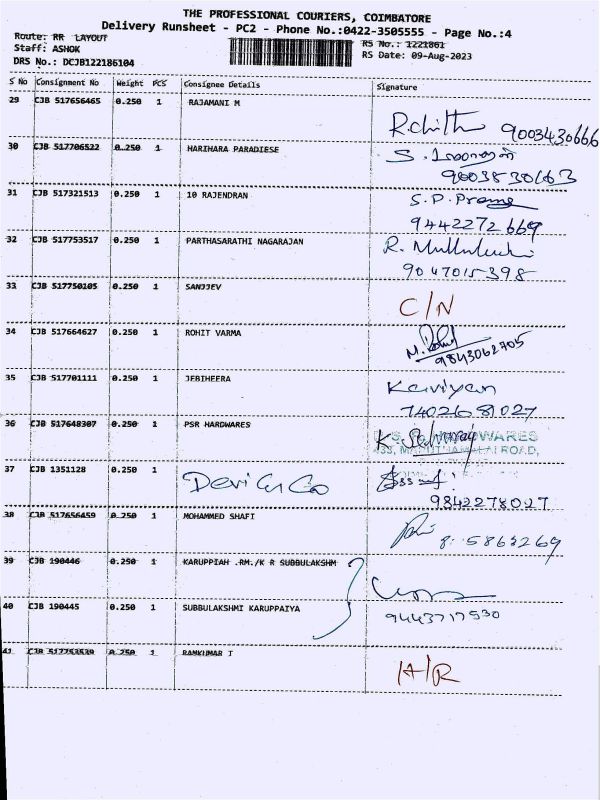 THE PROFESSIONAL COURIERS, COIMBATORE
Delivery Runsheet - PC2 - Phone No.:0422-3505555 - Page No.:4
Route: RR LAYOUT
RS No.: 1221861
Staff: ASHOK
RS Date: 09-Aug-2023
DRS No.: DCJB122186104
S No Consignment No Weight PCS Consignee Details Signature
29 CJB 517656465 0.250 1 RAJAMANI M
9003430666
30 CJB 517706522 0.250 1 HARIHARA PARADIESE
S.
9003830163
31 CJB 517321513 0.250 1 10 RAJENDRAN S.P.Prema
9442272669
32 CJB 517753517 0.250 1 PARTHASARATHI NAGARAJAN R.
9047015398
33 CJB 517750105 0.250 1 SANJJEV
C/N
34 CJB 517664627 0.250 1 ROHIT VARMA
9843062705
35 CJB 517701111 0.250 1 JEBIHEERA Kaviyan
7402681027
36 CJB 517648307 0.250 1 PSR HARDWARES
HARDWARES
ROAD,
37 CJB 1351128 0.250 1 Devi & Co
9842278027
38 CJB 517656459 0.250 1 MOHAMMED SHAFI
39 CJB 190446 0.250 1 KARUPPIAH .RM./K R SUBBULAKSHM
40 CJB 190445 0.250 1 SUBBULAKSHMI KARUPPAIYA
9443717530
41 CJB 517753539 0.250 1 RAMKUMAR T
A/R